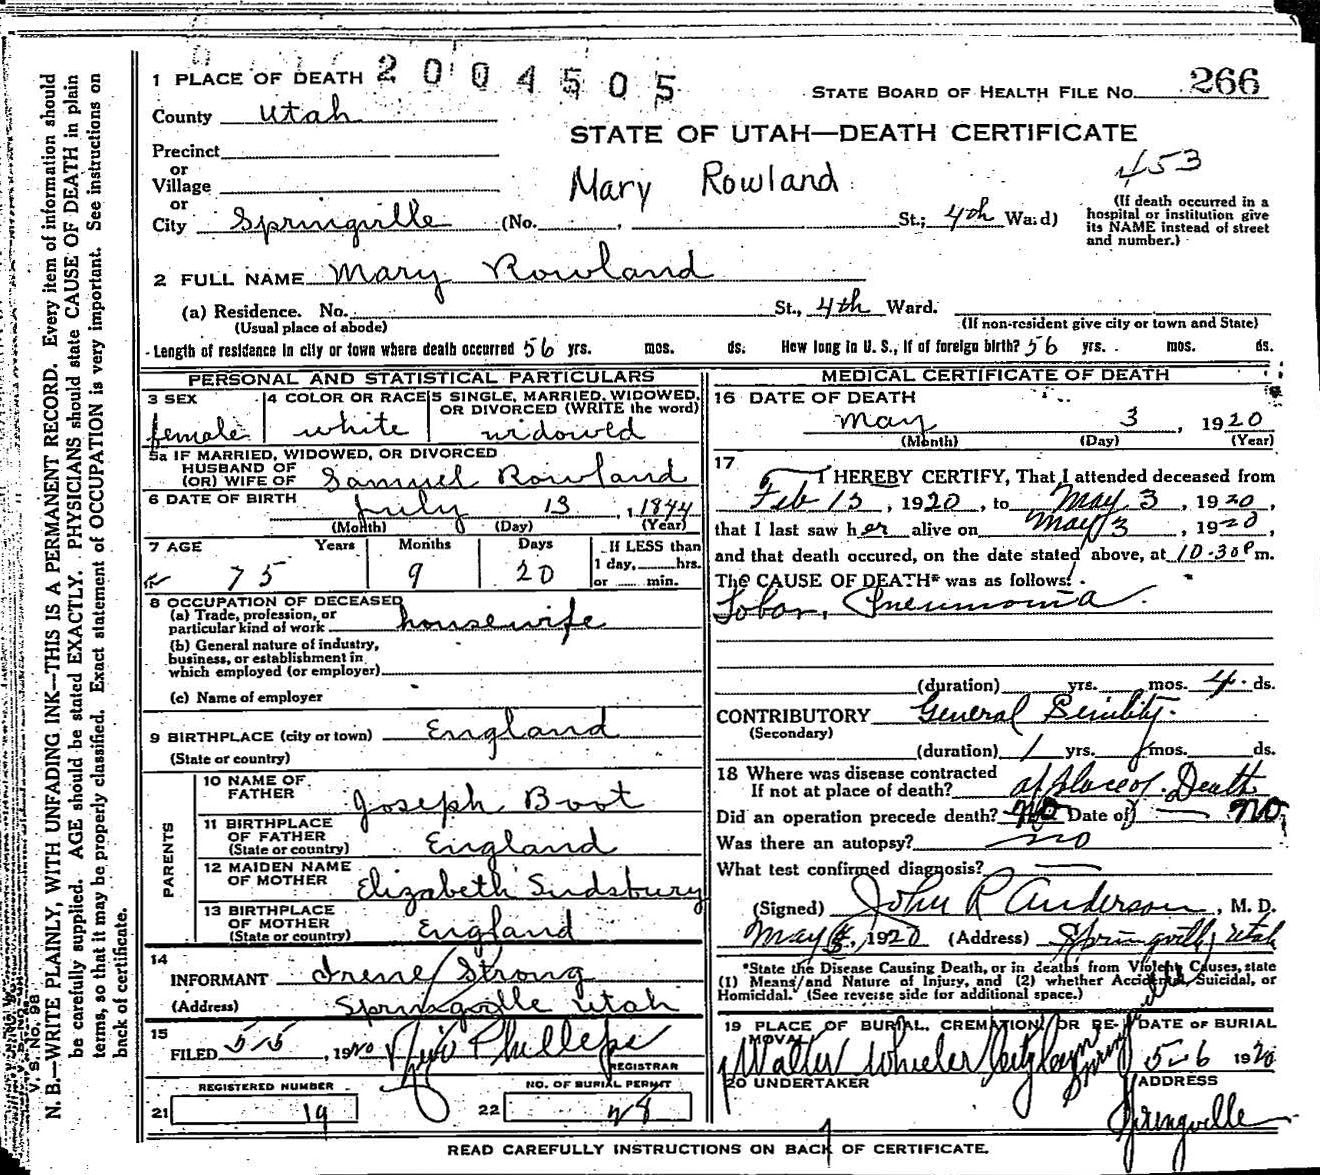 2004505
1 PLACE OF DEATH
STATE BOARD OF HEALTH FILE No. 266
County Utah
STATE OF UTAH—DEATH CERTIFICATE
Precinct
or
Village
Mary Rowland
453
or
City Springville (No. , St.; 4th Ward)
(If death occurred in a
hospital or institution give
its NAME instead of street
and number.)
2 FULL NAME Mary Rowland
(a) Residence. No. St., 4th Ward.
(Usual place of abode)
(If non-resident give city or town and State)
Length of residence in city or town where death occurred 56 yrs. mos. ds. How long in U. S., if of foreign birth? 56 yrs. mos. ds.
PERSONAL AND STATISTICAL PARTICULARS
3 SEX
female
4 COLOR OR RACE
white
5 SINGLE, MARRIED, WIDOWED,
OR DIVORCED (WRITE the word)
widowed
5a IF MARRIED, WIDOWED, OR DIVORCED
HUSBAND OF
(OR) WIFE OF Samuel Rowland
6 DATE OF BIRTH July 13, 1844
(Month) (Day) (Year)
7 AGE Years Months Days
75 9 20
If LESS than
1 day, hrs.
or min.
8 OCCUPATION OF DECEASED
(a) Trade, profession, or
particular kind of work housewife
(b) General nature of industry,
business, or establishment in
which employed (or employer)
(c) Name of employer
9 BIRTHPLACE (city or town) England
(State or country)
PARENTS
10 NAME OF
FATHER Joseph Boot
11 BIRTHPLACE
OF FATHER
(State or country) England
12 MAIDEN NAME
OF MOTHER Elizabeth Sudsbury
13 BIRTHPLACE
OF MOTHER
(State or country) England
14
INFORMANT Irene Strong
(Address) Springville Utah
15
FILED 5-5, 1920
REGISTRAR
REGISTERED NUMBER
21 19
NO. OF BURIAL PERMIT
22 48
MEDICAL CERTIFICATE OF DEATH
16 DATE OF DEATH
May 3, 1920
(Month) (Day) (Year)
17
I HEREBY CERTIFY, That I attended deceased from
Feb 13, 1920, to May 3, 1920,
that I last saw her alive on May 3, 1920,
and that death occured, on the date stated above, at 10-30P m.
The CAUSE OF DEATH* was as follows:
Lobar, Pneumonia.
(duration) yrs. mos. 4 ds.
CONTRIBUTORY General Senility.
(Secondary)
(duration) 1 yrs. mos. ds.
18 Where was disease contracted
If not at place of death? at place of Death
Did an operation precede death? No Date of — NO
Was there an autopsy? no
What test confirmed diagnosis? —
(Signed) John R Anderson, M. D.
May 5, 1920 (Address) Springville Utah
*State the Disease Causing Death, or in deaths from Violent Causes, state
(1) Means and Nature of Injury, and (2) whether Accidental, Suicidal, or
Homicidal. (See reverse side for additional space.)
19 PLACE OF BURIAL, CREMATION OR RE-
MOVAL
DATE OF BURIAL
5-6 1920
20 UNDERTAKER
Walter Wheeler
ADDRESS
Springville
READ CAREFULLY INSTRUCTIONS ON BACK OF CERTIFICATE.
V. S. No. 98
N. B.—WRITE PLAINLY, WITH UNFADING INK—THIS IS A PERMANENT RECORD. Every item of information should
be carefully supplied. AGE should be stated EXACTLY. PHYSICIANS should state CAUSE OF DEATH in plain
terms, so that it may be properly classified. Exact statement of OCCUPATION is very important. See instructions on
back of certificate.